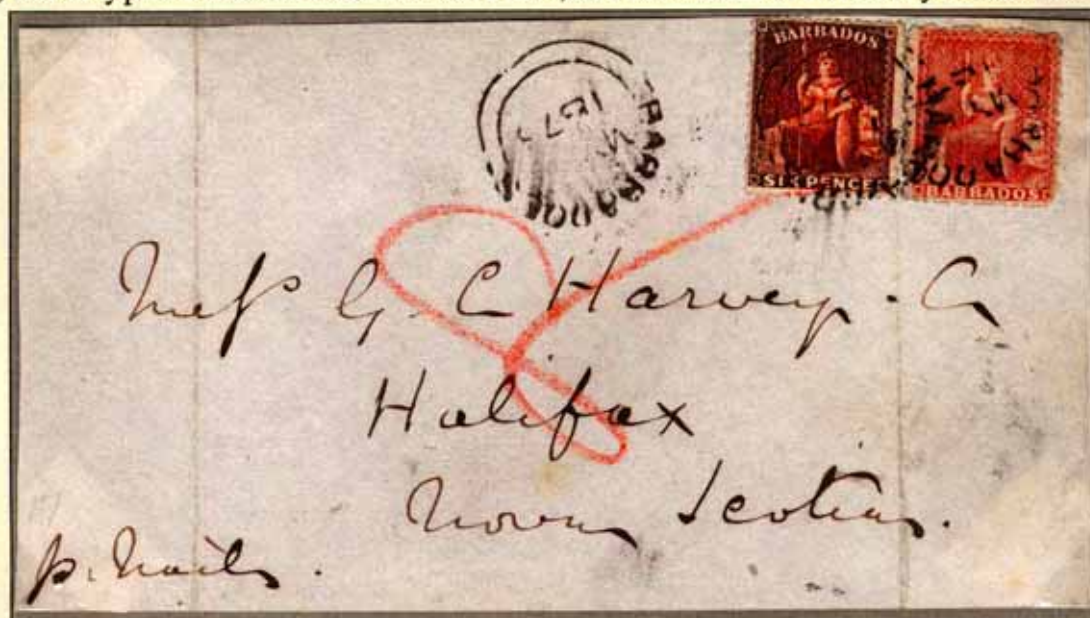 BARBADOS
SIX PENCE
BARBADOS
BARBADOS
Messrs G. C. Harvey & Co
Halifax
Nova Scotia.
p. Mails.
8